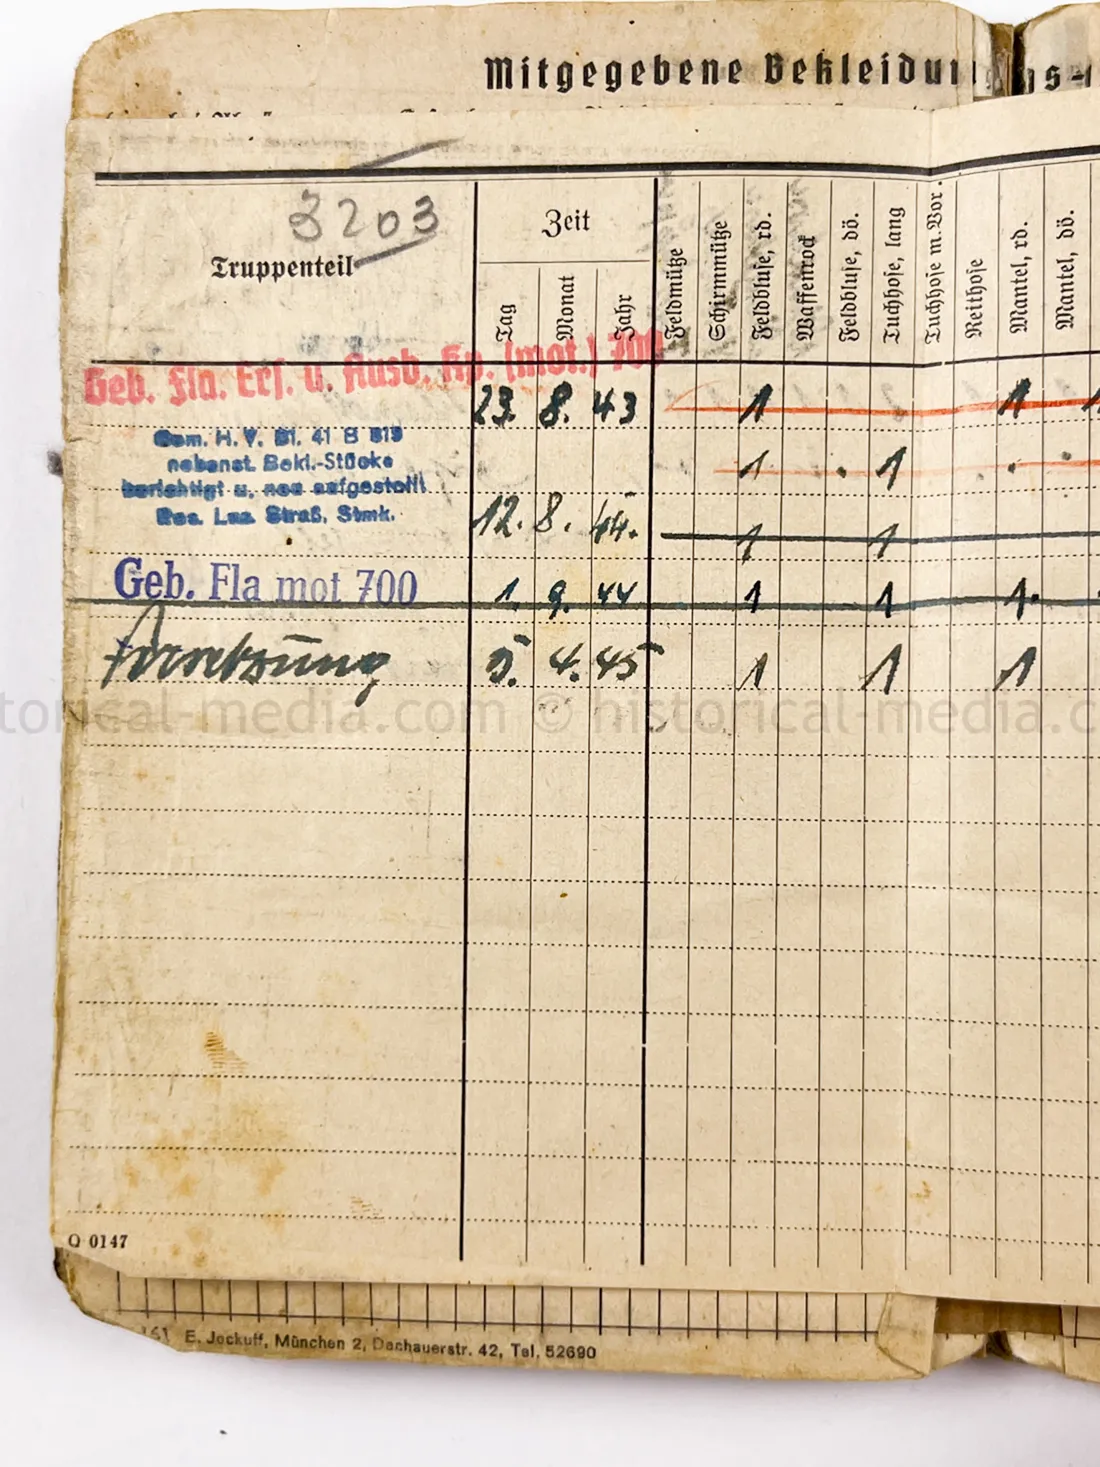 Mitgegebene Bekleidungs-
3203
Truppenteil
Zeit
Tag
Monat
Jahr
Feldmütze
Schirmmütze
Feldbluse, rd.
Waffenrock
Feldbluse, dö.
Tuchhose, lang
Tuchhose m. Vor.
Reithose
Mantel, rd.
Mantel, dö.
Geb. Fla. Ers. u. Ausb. Kp. (mot.) 700
23. 8. 43 1 1 1
Gem. H. V. Bl. 41 B 819
nebenst. Bekl.-Stücke
berichtigt u. neu aufgestellt
Res. Laz. Straß, Stmk.
1 1
12. 8. 44. 1 1
Geb. Fla mot 700 1. 9. 44 1 1 1
5. 4. 45 1 1 1
historical-media.com © historical-media.c
O 0147
161 E. Jockuff, München 2, Dachauerstr. 42, Tel. 52690